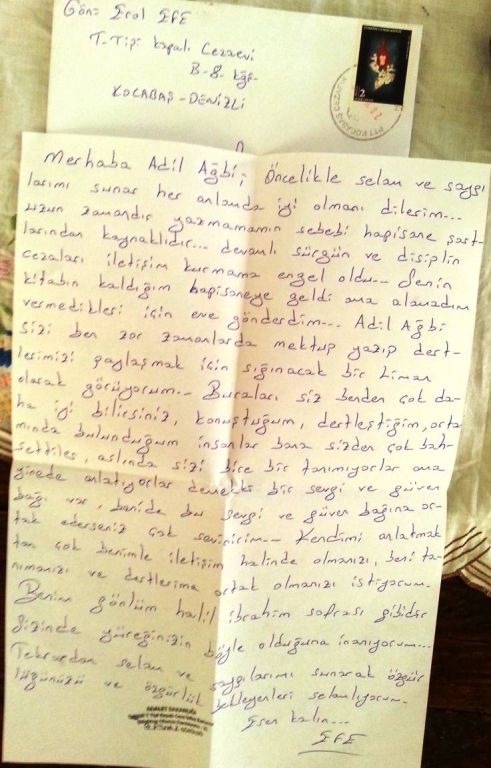 Gön: Erol EFE
T. Tipi kapalı Cezaevi
B-8- Kğş-
KOCABAŞ-DENİZLİ
2
PTT KOCABAŞ CEZAEVİ
Merhaba Adil Ağbi; Öncelikle selam ve saygı
larımı sunar her anlamda iyi olmanı dilerim...
uzun zamandır yazmamamın sebebi hapisane şart-
larından kaynaklıdır... devamlı sürgün ve disiplin
cezaları iletişim kurmama engel oldu... Senin
kitabın kaldığım hapisaneye geldi ama alamadım
vermedikleri için eve gönderdim... Adil Ağbi
sizi ben zor zamanlarda mektup yazıp dert-
lerimizi paylaşmak için sığınacak bir Liman
olarak görüyorum... Buraları siz benden çok da-
ha iyi bilirsiniz, konuştuğum, dertleştiğim, orta
mında bulunduğum insanlar bana sizden çok bah-
settiler, aslında sizi birebir tanımıyorlar ama
yinede anlatıyorlar demekki bir sevgi ve güven
bağı var, benide bu sevgi ve güven bağına or-
tak ederseniz çok sevinirim... Kendimi anlatmak
tan çok benimle iletişim halinde olmanızı, beni ta-
nımanızı ve dertlerime ortak olmanızı istiyorum.
Benim gönlüm halil ibrahim sofrası gibidir
Sizinde yüreğinizin böyle olduğuna inanıyorum...
Tekrardan selam ve saygılarımı sunarak özgür
lüğünüzü ve özgürlük bekleyenleri selamlıyorum.
Esen kalın...
EFE
ADALET BAKANLIĞI